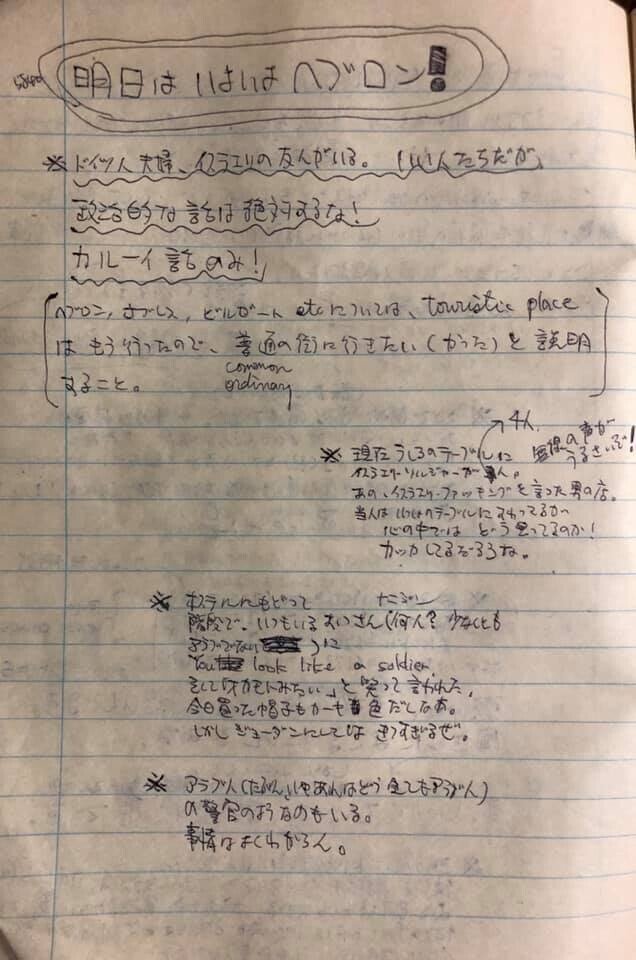 明日は いよいよ ヘブロン!
※ ドイツ人夫婦、イスラエリの友人がいる。 いい人たちだが、
政治的な話は絶対するな!
カルーイ話のみ!
ヘブロン, ナブレス, etcについては、touristic place
は もう行ったので、普通の街に行きたい(かった)と説明
common
ordinary
すること。
4人
※ 現在うしろのテーブルに
無線の声が
うるさいぞ!
イスラエリーソルジャーが 人。
あの、イスラエリーファッキングを言った男の店。
当人は のテーブルにすわってるが
心の中では どう思ってるのか!
カッカしてるだろうな。
※ ホステルにもどって
たぶん
階段で、いつもいるおじさん(何人? 少なくとも
アラブでない )に
You look like a soldier
そして「オカモトみたい」と笑って言われた。
今日買った帽子もカーキ色だしなあ。
しかしジョーダンにしては きつすぎるぜ。
※ アラブ人(たぶん、いやあれはどう見てもアラブ人)
の警官のようなのもいる。
事情はよくわからん。